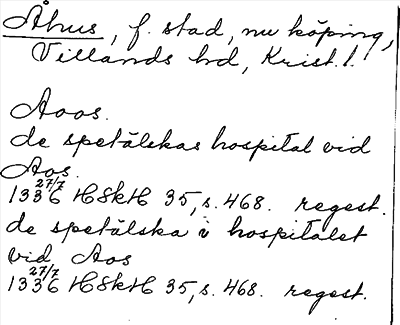 Åhus, f. stad, nu köping,
Villands hd, Krist. l.
Aoos.
de spetälskas hospital vid
Aos.
1336 27/7 HSkH 35, s. 468. regest.
de spetälska i hospitalet
vid Aos
1336 27/7 HSkH 35, s. 468. regest.